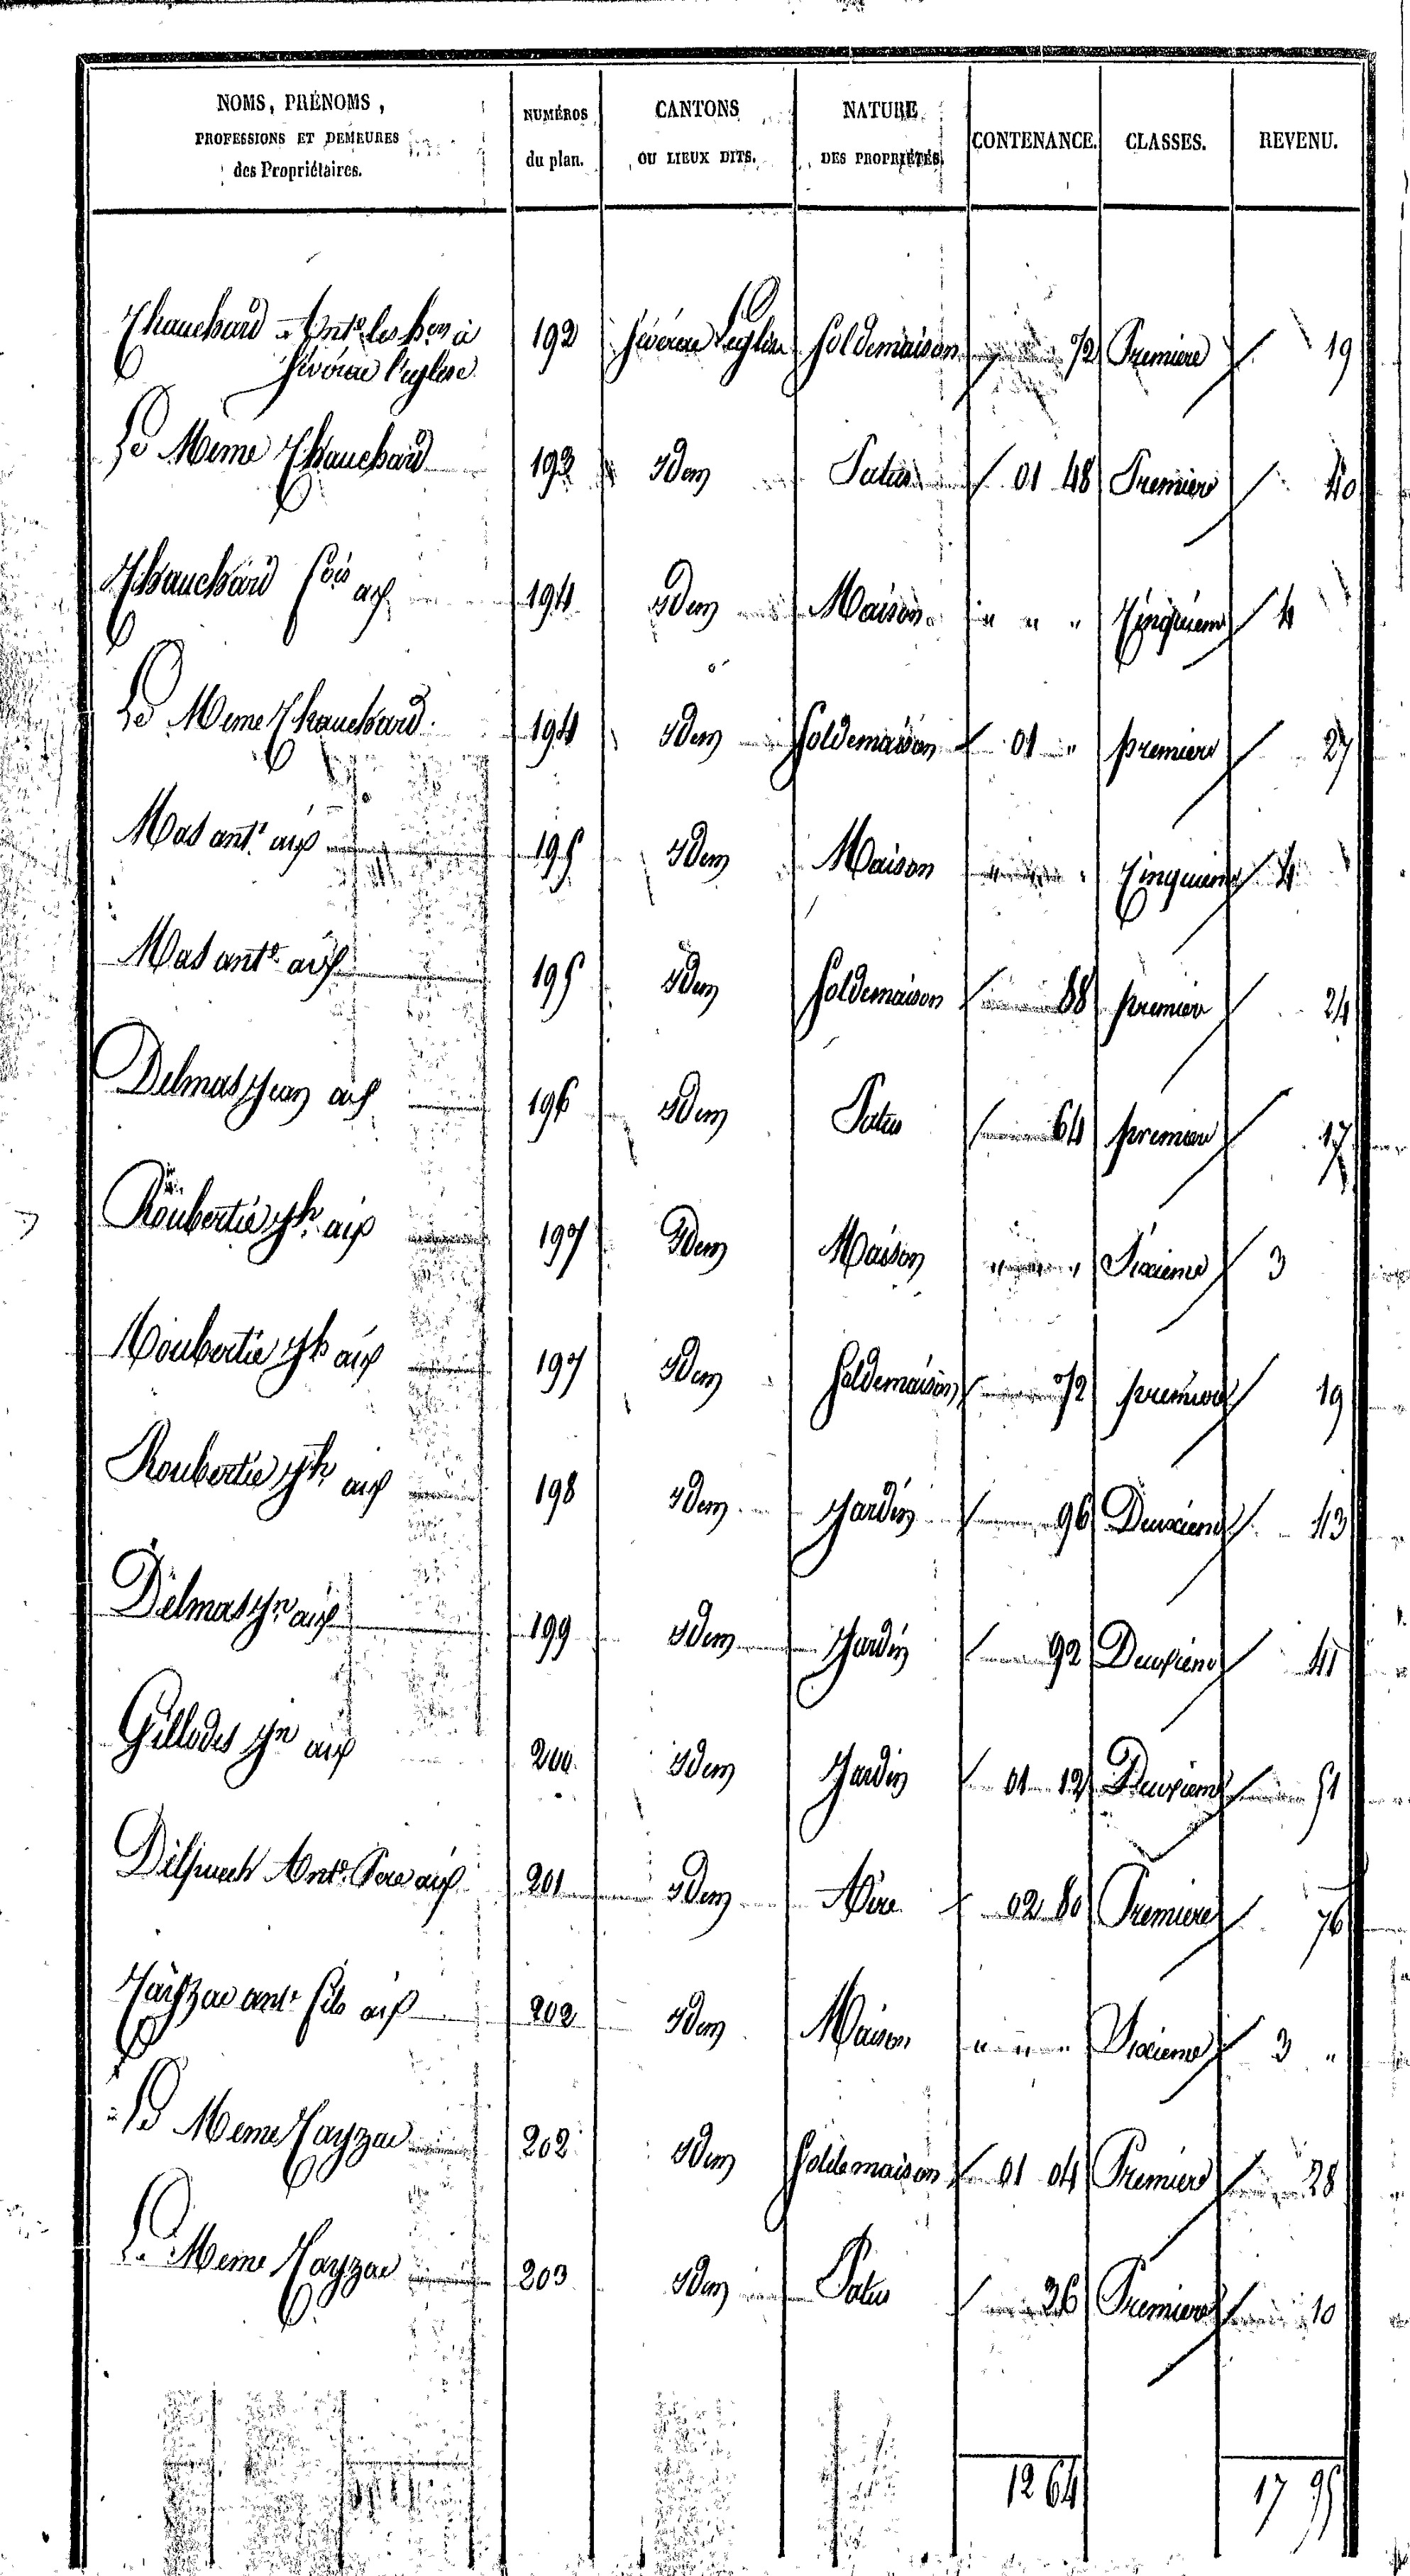 NOMS, PRÉNOMS, PROFESSIONS ET DEMEURES des Propriétaires. NUMÉROS du plan. CANTONS OU LIEUX DITS. NATURE DES PROPRIÉTÉS. CONTENANCE. CLASSES. REVENU.
Chauchard Ant.e les h.ers à 192 Sévérac l'église Soldemaison 72 Premiere 19
Sévérac l'eglise
Le Meme Chauchard 193 Idem Patus 01 48 Premiere 40
Chauchard f.ois aiς 194 Idem Maison " " " Cinquieme 4
Le Meme Chauchard 194 Idem Soldemaison 01 " premiere 27
Mas ant.e 195 Idem Maison " " " Cinquieme 4
Mas ant.e 195 Idem Soldemaison 88 premiere 24
Delmas Jean 196 Idem Patus 64 premiere 17
Roubertie Jh 197 Idem Maison " " " Sixieme 3
Roubertie Jh 197 Idem Soldemaison 72 premiere 19
Roubertie Jh 198 Idem Jardin 96 Deuxieme 43
Delmas Jn 199 Idem Jardin 92 Deuxieme 41
Gillodes Jn 200 Idem Jardin 01 12 Deuxieme 51
Delpuech Ant.e Pere 201 Idem Aire 02 80 Premiere 76
Cayzac ant.e fils 202 Idem Maison " " " Sixieme 3 "
Le Meme Cayzac 202 Idem Soldemaison 01 04 Premiere 28
Le Meme Cayzac 203 Idem Patus 36 Premiere 10
12 64 17 95